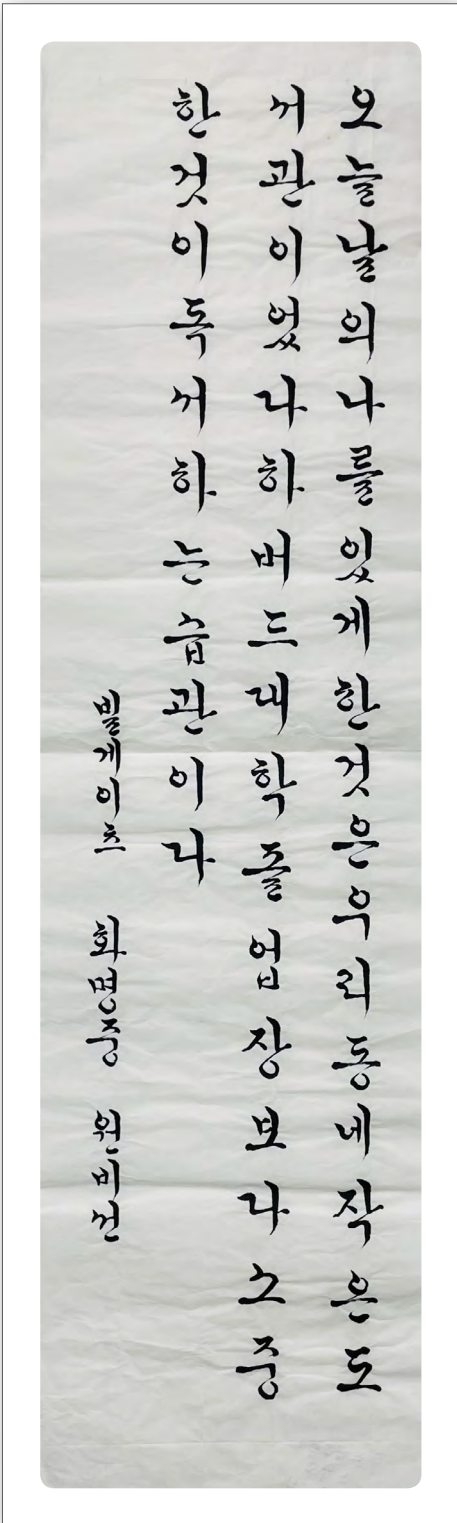 오늘날의나를있게한것은우리동네작은도
서관이었다하버드대학졸업장보다소중
한것이독서하는습관이다
빌게이츠 화명중 원비선